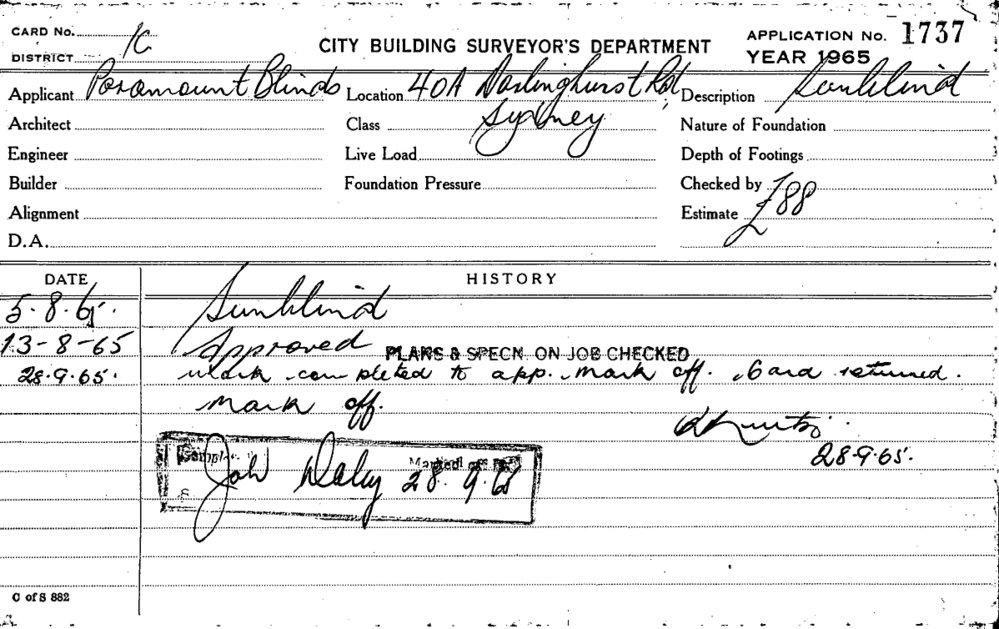 CARD No.
DISTRICT K
CITY BUILDING SURVEYOR'S DEPARTMENT
APPLICATION No. 1737
YEAR 1965
Applicant Paramount Blinds Location 40A Darlinghurst Rd, Description Sunblind
Architect Class Sydney Nature of Foundation
Engineer Live Load Depth of Footings
Builder Foundation Pressure Checked by
Alignment Estimate £88
D.A.
DATE HISTORY
5.8.65. Sunblind
13-8-65 Approved PLANS & SPECN. ON JOB CHECKED
28.9.65. Work completed to app. Mark off. Card returned.
Mark off.
28.9.65.
Marked off
Job 28.9.65
C of S 882